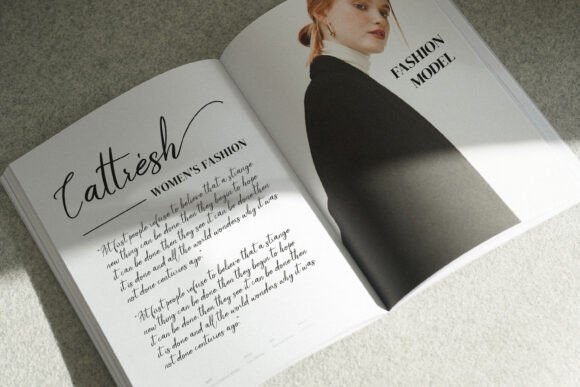 Cattrésh
WOMEN'S FASHION
"At fust people refuse to believe that a strange
new thing can be done, then they begin to hope
it can be done, then they see it can be done, then
it is done and all the world wonders why it was
not done centuries ago."
"At fust people refuse to believe that a strange
new thing can be done, then they begin to hope
it can be done, then they see it can be done, then
it is done and all the world wonders why it was
not done centuries ago."
FASHION
MODEL